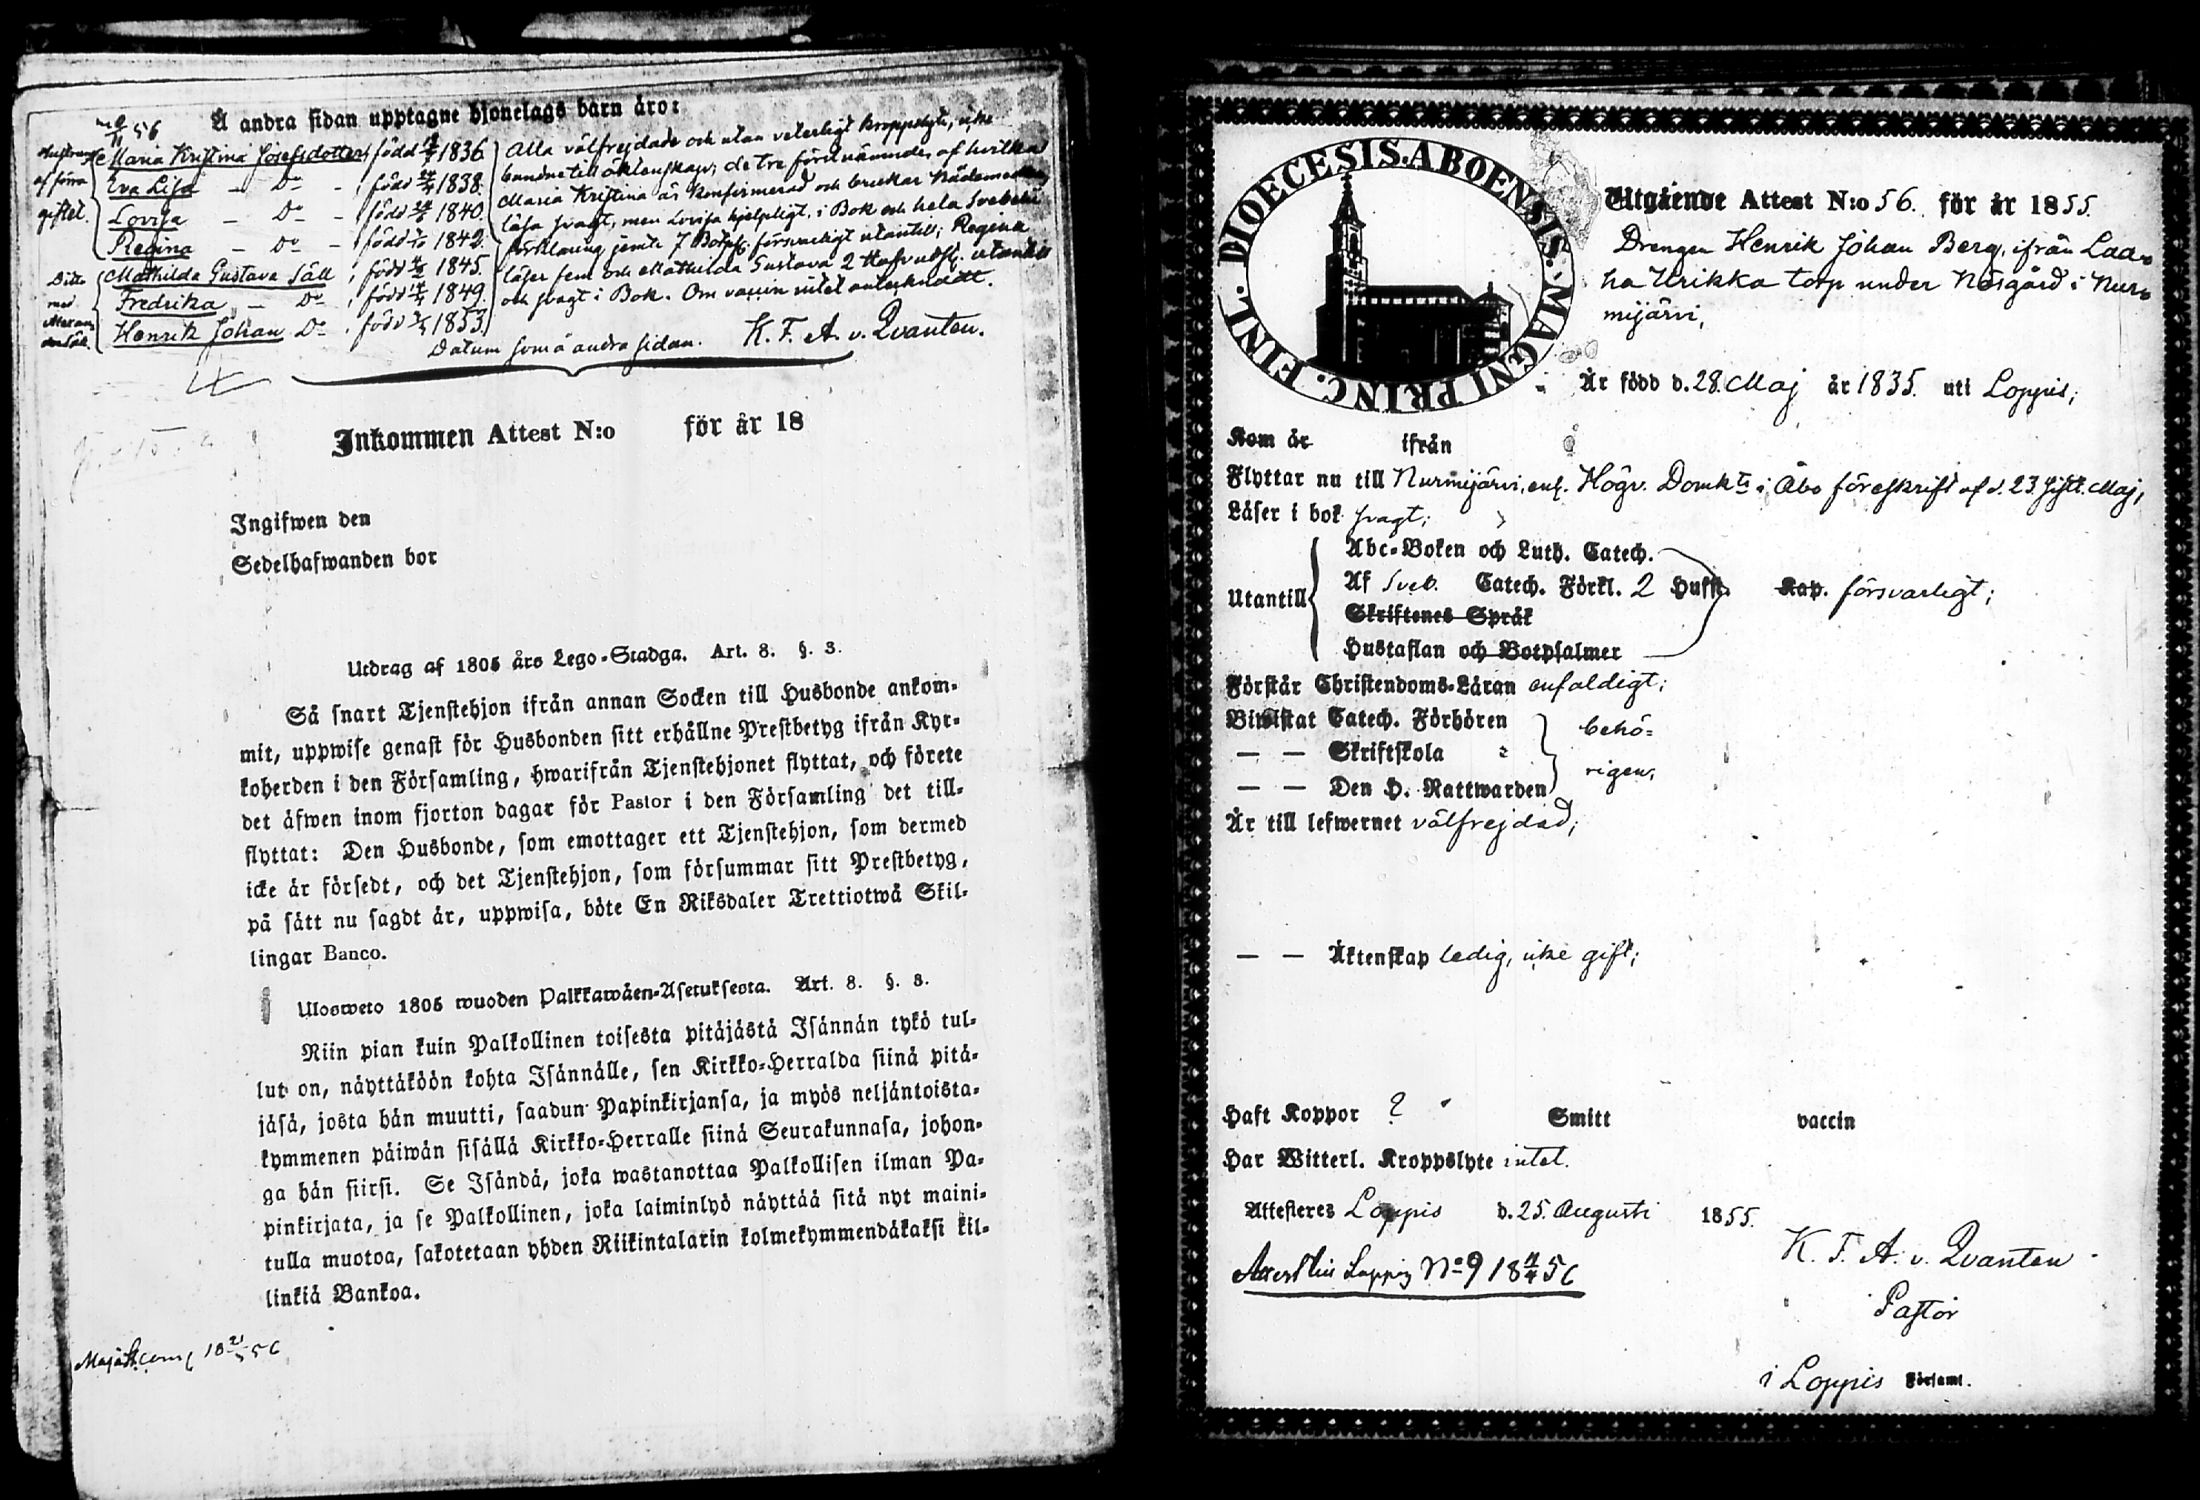 56
Å andra sidan upptagne hjonelags barn äro:
Maria Kristina Josefsdotter, född 1836.
Eva Lisa — Do — , född 1838.
Lovisa — Do — född 1840.
Regina — Do — född 1842.
Mathilda Gustava Säll, född 1845.
Fredrika — Do , född 1849.
Henrik Johan Do , född 1853.
af förra
giftet.
Ditto
med
Alla välfrejdade och utan veterligt kroppslyte, icke
bundne till äktenskap; de tre förstnämnde, af hvilka
Maria Kristina är konfirmerad och brukar Nådemedlen,
läsa svagt, men Lovisa hjelpligt, i Bok och hela Svebelii
förklaring jemte 7 Botps. försvarligt utantill; Regina
läser fem och Mathilda Gustava 2 Hufvudst. utantill
och svagt i Bok. Om vaccin intet antecknadt.
Datum som å andra sidan. K. F. A. v. Qvanten.
Inkommen Attest N:o för år 18
Ingifwen den
Sedelhafwanden bor
Utdrag af 1805 års Lego-Stadga. Art. 8. §. 3.
Så snart Tjenstehjon ifrån annan Socken till Husbonde ankom-
mit, uppwise genast för Husbonden sitt erhållne Prestbetyg ifrån Kyr-
koherden i den Församling, hwarifrån Tjenstehjonet flyttat, och förete
det äfwen inom fjorton dagar för Pastor i den Församling det till-
flyttat: Den Husbonde, som emottager ett Tjenstehjon, som dermed
icke är försedt, och det Tjenstehjon, som försummar sitt Prestbetyg,
på sätt nu sagdt är, uppwisa, böte En Riksdaler Trettiotwå Skil-
lingar Banco.
Ulosweto 1805 wuoden Palkkawäen-Asetuksesta. Art. 8. §. 3.
Niin pian kuin Palkollinen toisesta pitäjästä Isännän tykö tul-
lut on, näyttäköön kohta Isännälle, sen Kirkko-Herralda siinä pitä-
jäsä, josta hän muutti, saadun Papinkirjansa, ja myös neljäntoista-
kymmenen päiwän sisällä Kirkko-Herralle siinä Seurakunnasa, johon-
ga hän siirsi. Se Isändä, joka wastanottaa Palkollisen ilman Pa-
pinkirjata, ja se Palkollinen, joka laiminlyö näyttää sitä nyt maini-
tulla muotoa, sakotetaan yhden Riikintalarin kolmekymmendäkaksi kil-
linkiä Bankoa.
DIOECESIS. ABOENSIS. MAGNI PRINC. FINL.
Utgående Attest N:o 56. för år 1855.
Drengen Henrik Johan Berg, ifrån Laa-
ha Urikka torp under Näsgård i Nur-
mijärvi,
Är född d. 28. Maj år 1835. uti Loppis;
Kom år ifrån
Flyttar nu till Nurmijärvi, enl. Högv. Domkts i Åbo föreskrift af d. 23. sistl. Maj;
Läser i bok svagt;
Utantill
Abc-Boken och Luth. Catech.
Af Sveb. Catech. Förkl. 2 Hufst. Kap. försvarligt;
Skriftenes Språk
Hustaflan och Botpsalmer
Förstår Christendoms-Läran enfaldigt;
Biwistat Catech. Förhören
— — Skriftskola
— — Den H. Nattwarden
behö-
rigen;
Är till lefwernet välfrejdad;
— — Äktenskap ledig, icke gift;
Haft Koppor ? Smitt vaccin
Har Witterl. Kroppslyte intet.
Attesteres Loppis d. 25. Augusti 1855.
K. F. A. v. Qvanten
Pastor
i Loppis Församl.